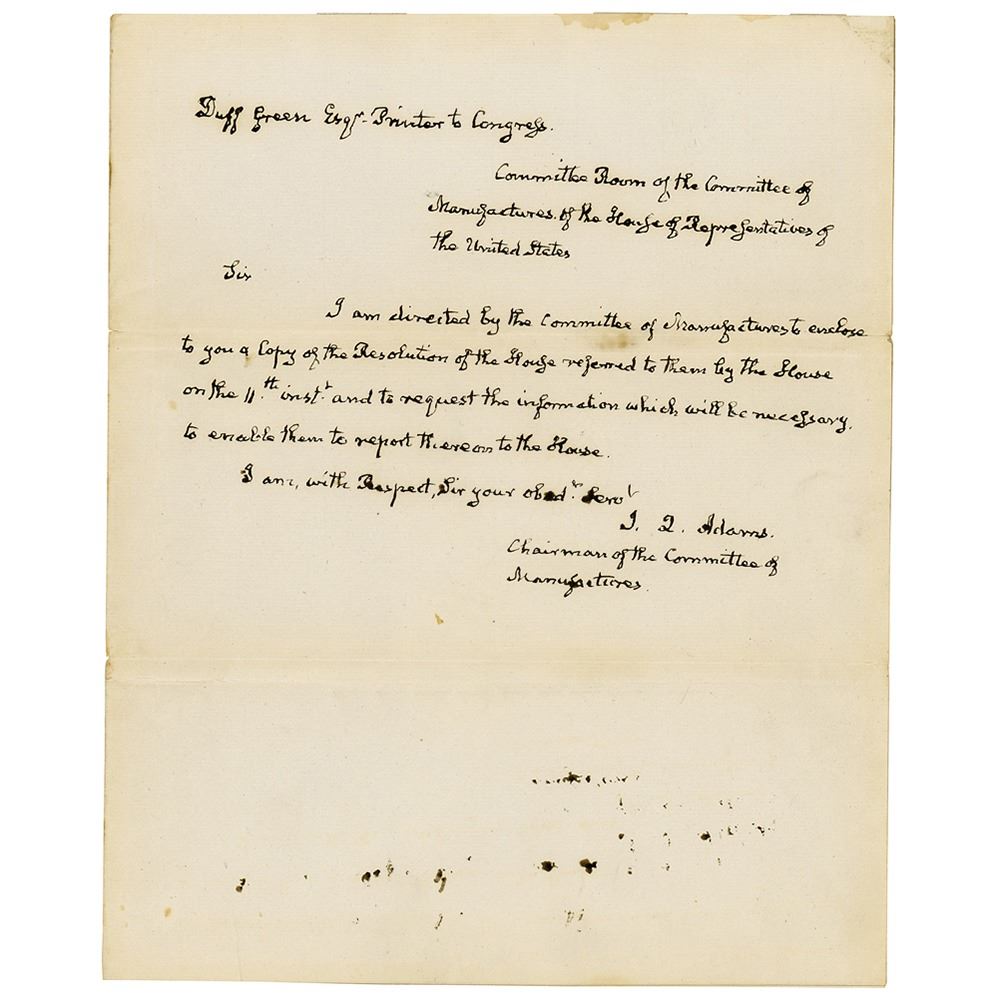 Duff Green Esqr. Printer to Congress.
Committee Room of the Committee of
Manufactures of the House of Representatives of
the United States
Sir
I am directed by the Committee of Manufactures to enclose
to you a Copy of the Resolution of the House referred to them by the House
on the 11.th inst.t and to request the information which will be necessary
to enable them to report thereon to the House.
I am, with Respect, Sir your obed.t Servt
J. Q. Adams.
Chairman of the Committee of
Manufactures.